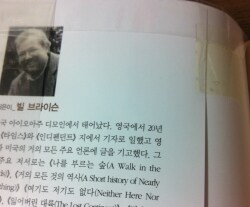 은이_빌 브라이슨
국 아이오아주 디모인에서 태어났다. 영국에서 20년
《타임스》와 《인디펜던트》 지에서 기자로 일했고 영
미국의 거의 모든 주요 언론에 글을 기고했다. 그
주요 저서로는 《나를 부르는 숲(A Walk in the
《거의 모든 것의 역사(A Short history of Nearly
thing)》 《여기도 저기도 없다(Neither Here Nor
《잃어버린 대륙(The Lost